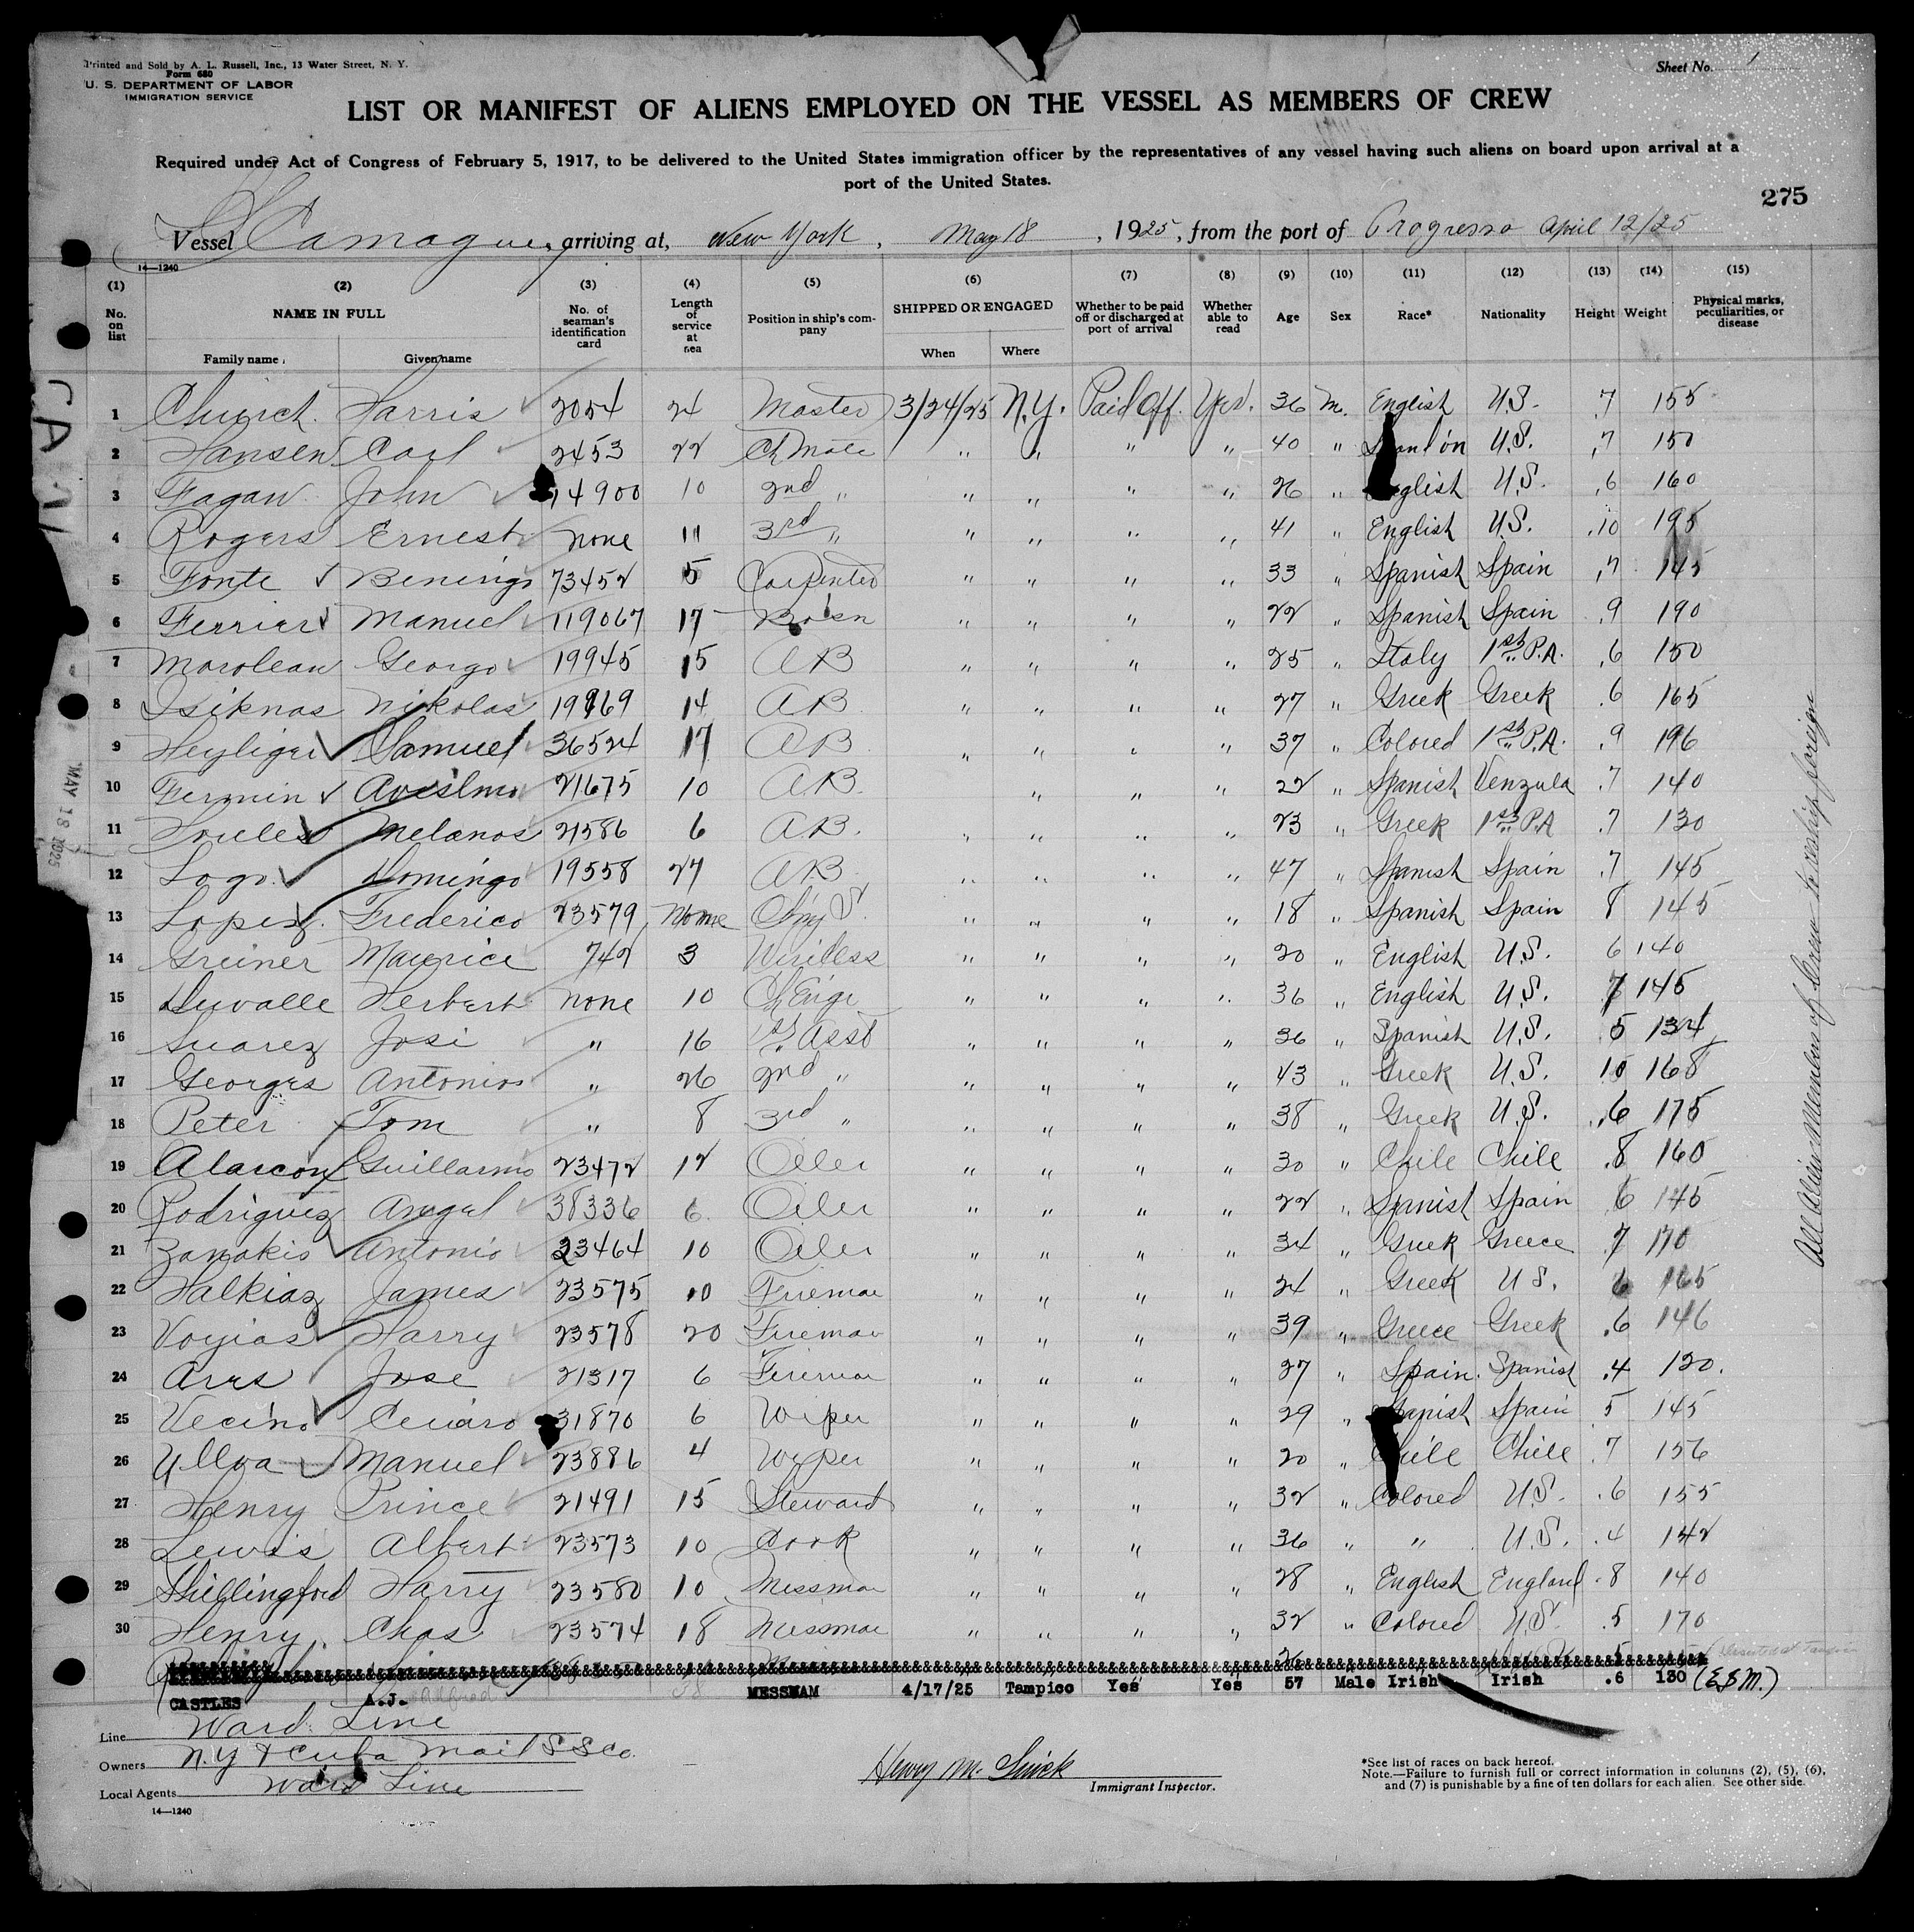 Printed and Sold by A. L. Russell, Inc., 13 Water Street, N. Y.
Form 680
U. S. DEPARTMENT OF LABOR
IMMIGRATION SERVICE
Sheet No. 1
LIST OR MANIFEST OF ALIENS EMPLOYED ON THE VESSEL AS MEMBERS OF CREW
Required under Act of Congress of February 5, 1917, to be delivered to the United States immigration officer by the representatives of any vessel having such aliens on board upon arrival at a
port of the United States.
275
Vessel Camaguey, arriving at, New York, May 18, 1925, from the port of Progresso April 12/25
14—1240
(1) (2) (3) (4) (5) (6) (7) (8) (9) (10) (11) (12) (13) (14) (15)
No. on list NAME IN FULL Family name Given name No. of seaman's identification card Length of service at sea Position in ship's company SHIPPED OR ENGAGED When Where Whether to be paid off or discharged at port of arrival Whether able to read Age Sex Race* Nationality Height Weight Physical marks, peculiarities, or disease
1 Church Harris 2054 24 Master 3/24/25 N.Y. Paid Off. Yes. 36 M. English U.S. .7 155
2 Hansen Carl 2453 22 Ch Mate " " " " 40 " U.S. .7 150
3 Fagan John 14900 10 2nd " " " " " 26 " English U.S. .6 160
4 Rogers Ernest none 11 3rd " " " " " 41 " English U.S. .10 195
5 Fonte Beningo 73452 5 Carpenter " " " " 33 " Spanish Spain .7 145
6 Ferrier Manuel 119067 17 Bosn " " " " 22 " Spanish Spain .9 190
7 Marolean George 19945 15 AB " " " " 25 " Italy 1st P.A. .6 150
8 Isiknas Nikolas 19969 14 AB " " " " 27 " Greek Greek .6 165
9 Heyliger Samuel 36524 17 AB " " " " 37 " Colored 1st P.A. .9 196
10 Fermin 21675 10 AB. " " " 22 " Spanish Venzula .7 140
11 Melanos 21586 6 AB. " " " " 23 " Greek 1st P.A .7 130
12 Logo. Domingo 19558 27 AB. " " " " 47 " Spanish Spain .7 145
13 Lopez. Frederico 23579 None " " " " 18 " Spanish Spain 8 145
14 Greiner Maurice 742 3 Wireless " " " " 20 " English U.S. 6 140
15 Duvalle Herbert none 10 Ch Engr " " " " 36 " English U.S. 7 145
16 Suarez Josi " 16 1st Asst " " " " 36 " Spanish U.S. .5 134
17 Georges Antonios " 26 2nd " " " " " 43 " Greek U.S. 10 168
18 Peter Tom " 8 3rd " " " " " 38 " Greek U.S. .6 175
19 Alarcon Guillarmo 23472 12 Oiler " " " " 30 " Chile Chile .8 160
20 Rodriguez Angel 38336 6 Oiler " " " " 22 " Spanish Spain 6 145
21 Zanakis Antonio 23464 10 Oiler " " " " 34 " Greek Greece .7 170
22 Halkiaz James 23575 10 Fireman " " " " 24 " Greek U S. 6 165
23 Voyias Harry 23578 20 Fireman " " " " 39 " Greece Greek .6 146
24 Ares Jose 21317 6 Fireman " " " " 27 " Spain. Spanish .4 120.
25 Vecino 31870 6 Wiper " " " " 29 " Spanish Spain .5 145
26 Ullva Manuel 23886 4 Wiper " " " " 20 " Chile Chile .7 156
27 Henry Prince 21491 15 Steward " " " " 32 " Colored U.S. .6 155
28 Lewis Albert 23573 10 Cook " " " " 36 " " U.S. .4 142
29 Shillingford Harry 23580 10 Messman " " " " 28 " English England .8 140
30 Henry Chas 23574 18 Messman " " " " 32 " Colored U.S. .5 170
CASTLES A.J. Alfred MESSMAM 4/17/25 Tampico Yes Yes 57 Male Irish Irish .6 130 (E.S.M.)
All Alien Members of Crew to reship foreign
MAY 18 1925
Line Ward Line
Owners N.Y & Cuba Mail SS Co.
Local Agents Ward Line
14—1240
Immigrant Inspector.
*See list of races on back hereof.
Note.—Failure to furnish full or correct information in columns (2), (5), (6),
and (7) is punishable by a fine of ten dollars for each alien. See other side.